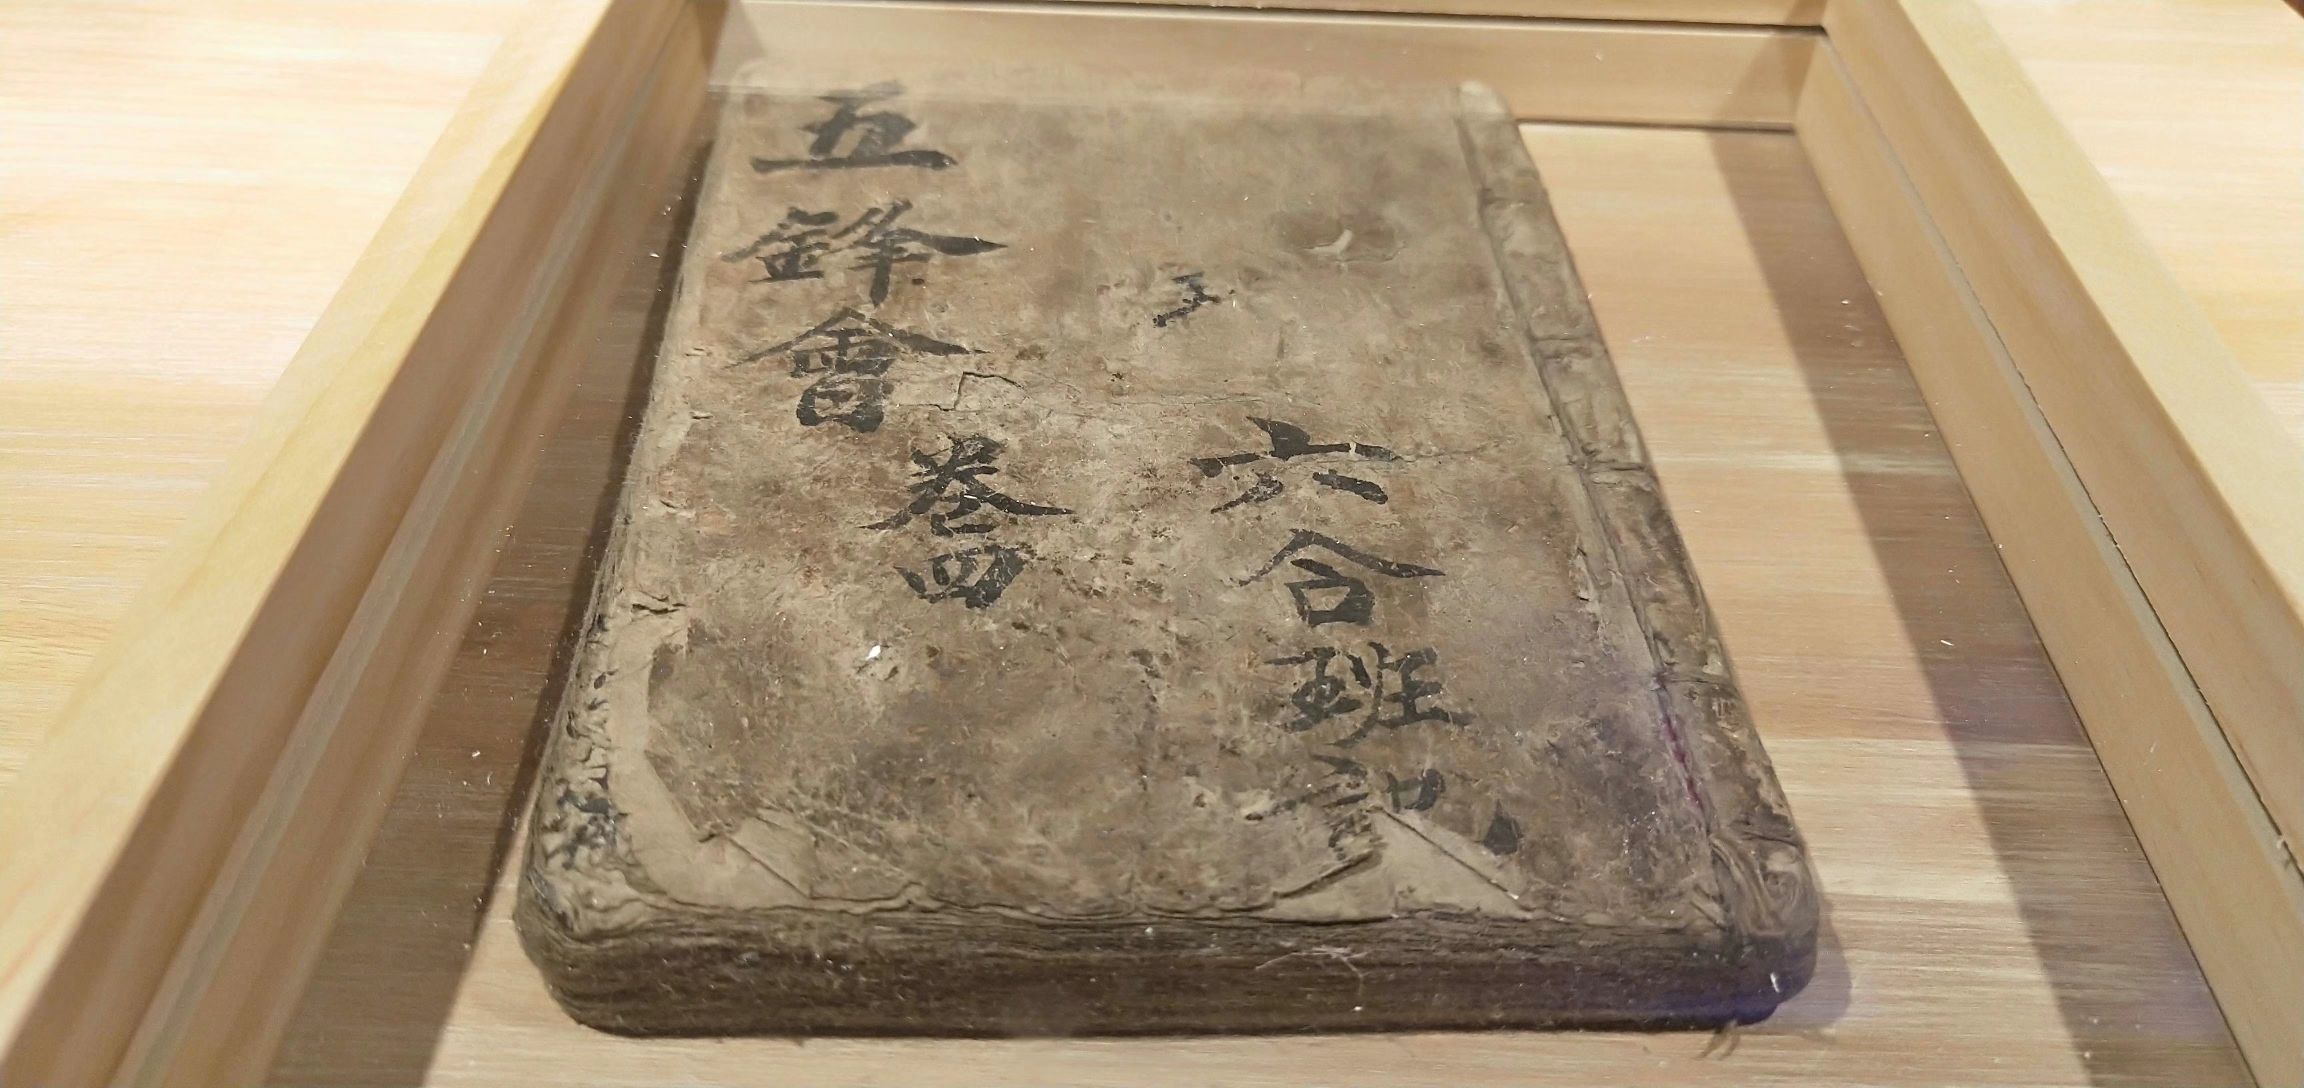 六合班記
五鋒會
卷四